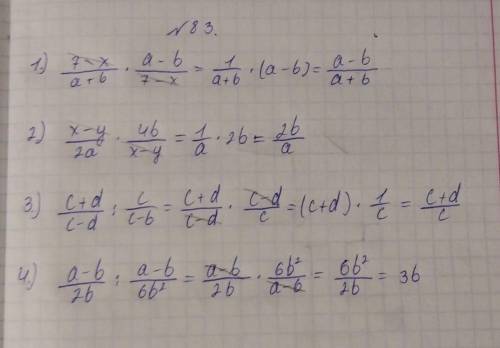 №83.
1.) (7-x)/(a+b) · (a-b)/(7-x) = 1/(a+b) · (a-b) = (a-b)/(a+b)
2) (x-y)/(2a) · 4b/(x-y) = 1/a · 2b = 2b/a
3.) (c+d)/(c-d) : c/(c-b) = (c+d)/(c-d) · (c-d)/c = (c+d) · 1/c = (c+d)/c
4.) (a-b)/(2b) : (a-b)/(6b²) = (a-b)/(2b) · 6b²/(a-b) = 6b²/(2b) = 3b